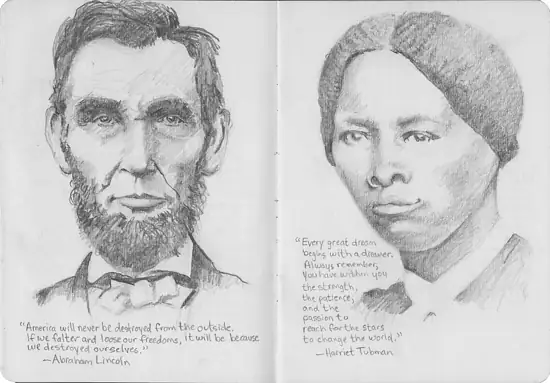 "America will never be destroyed from the outside.
If we falter and loose our freedoms, it will be because
we destroyed ourselves."
—Abraham Lincoln
"Every great dream
begins with a dreamer.
Always remember,
you have within you
the strength,
the patience,
and the
passion to
reach for the stars
to change the world."
—Harriet Tubman